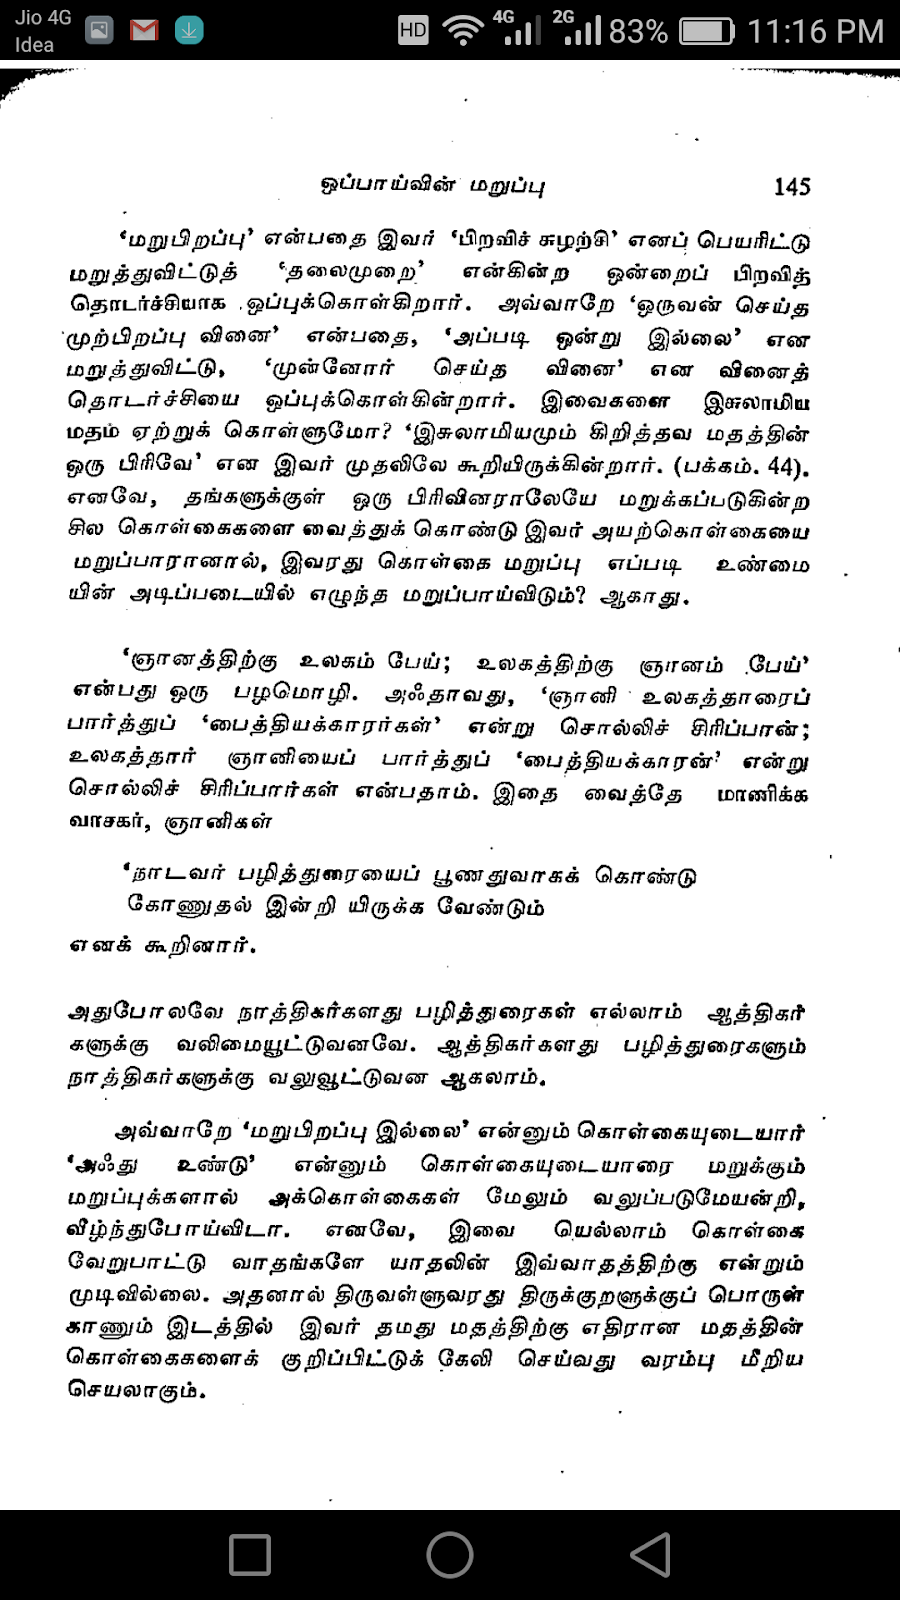 Jio 4G
Idea
HD
4G
2G
83%
11:16 PM
ஒப்பாய்வின் மறுப்பு 145
‘மறுபிறப்பு’ என்பதை இவர் ‘பிறவிச் சுழற்சி’ எனப் பெயரிட்டு
மறுத்துவிட்டுத் ‘தலைமுறை’ என்கின்ற ஒன்றைப் பிறவித்
தொடர்ச்சியாக ஒப்புக்கொள்கிறார். அவ்வாறே ‘ஒருவன் செய்த
முற்பிறப்பு வினை’ என்பதை, ‘அப்படி ஒன்று இல்லை’ என
மறுத்துவிட்டு, ‘முன்னோர் செய்த வினை’ என வினைத்
தொடர்ச்சியை ஒப்புக்கொள்கின்றார். இவைகளை இசுலாமிய
மதம் ஏற்றுக் கொள்ளுமோ? ‘இசுலாமியமும் கிறித்தவ மதத்தின்
ஒரு பிரிவே’ என இவர் முதலிலே கூறியிருக்கின்றார். (பக்கம். 44).
எனவே, தங்களுக்குள் ஒரு பிரிவினராலேயே மறுக்கப்படுகின்ற
சில கொள்கைகளை வைத்துக் கொண்டு இவர் அயற்கொள்கையை
மறுப்பாரானால், இவரது கொள்கை மறுப்பு எப்படி உண்மை
யின் அடிப்படையில் எழுந்த மறுப்பாய்விடும்? ஆகாது.
‘ஞானத்திற்கு உலகம் பேய்; உலகத்திற்கு ஞானம் பேய்’
என்பது ஒரு பழமொழி. அஃதாவது, ‘ஞானி உலகத்தாரைப்
பார்த்துப் ‘பைத்தியக்காரர்கள்’ என்று சொல்லிச் சிரிப்பான்;
உலகத்தார் ஞானியைப் பார்த்துப் ‘பைத்தியக்காரன்’ என்று
சொல்லிச் சிரிப்பார்கள் என்பதாம். இதை வைத்தே மாணிக்க
வாசகர், ஞானிகள்
‘நாடவர் பழித்துரையைப் பூணதுவாகக் கொண்டு
கோணுதல் இன்றி யிருக்க வேண்டும்
எனக் கூறினார்.
அதுபோலவே நாத்திகர்களது பழித்துரைகள் எல்லாம் ஆத்திகர்
களுக்கு வலிமையூட்டுவனவே. ஆத்திகர்களது பழித்துரைகளும்
நாத்திகர்களுக்கு வலுவூட்டுவன ஆகலாம்.
அவ்வாறே ‘மறுபிறப்பு இல்லை’ என்னும் கொள்கையுடையார்
‘அஃது உண்டு’ என்னும் கொள்கையுடையாரை மறுக்கும்
மறுப்புக்களால் அக்கொள்கைகள் மேலும் வலுப்படுமேயன்றி,
வீழ்ந்துபோய்விடா. எனவே, இவை யெல்லாம் கொள்கை
வேறுபாட்டு வாதங்களே யாதலின் இவ்வாதத்திற்கு என்றும்
முடிவில்லை. அதனால் திருவள்ளுவரது திருக்குறளுக்குப் பொருள்
காணும் இடத்தில் இவர் தமது மதத்திற்கு எதிரான மதத்தின்
கொள்கைகளைக் குறிப்பிட்டுக் கேலி செய்வது வரம்பு மீறிய
செயலாகும்.